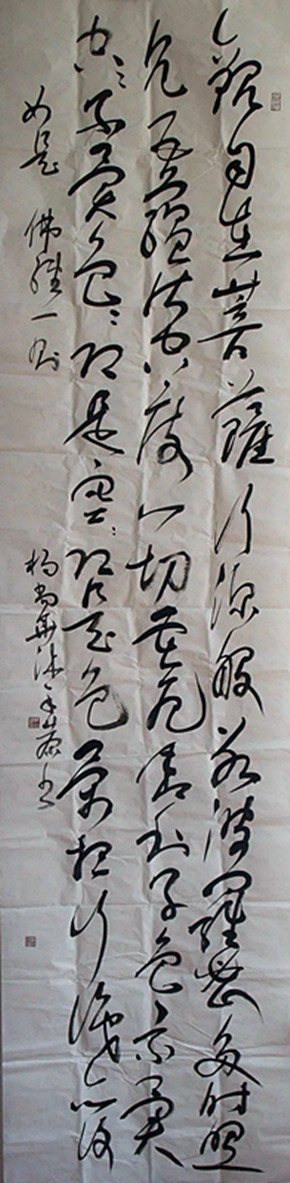 觀自在菩薩行深般若波羅蜜多時照
見五蘊皆空度一切苦厄舍利子色不異
空〻不異色〻即是空〻即是色受想行識亦復
如是 佛經一則